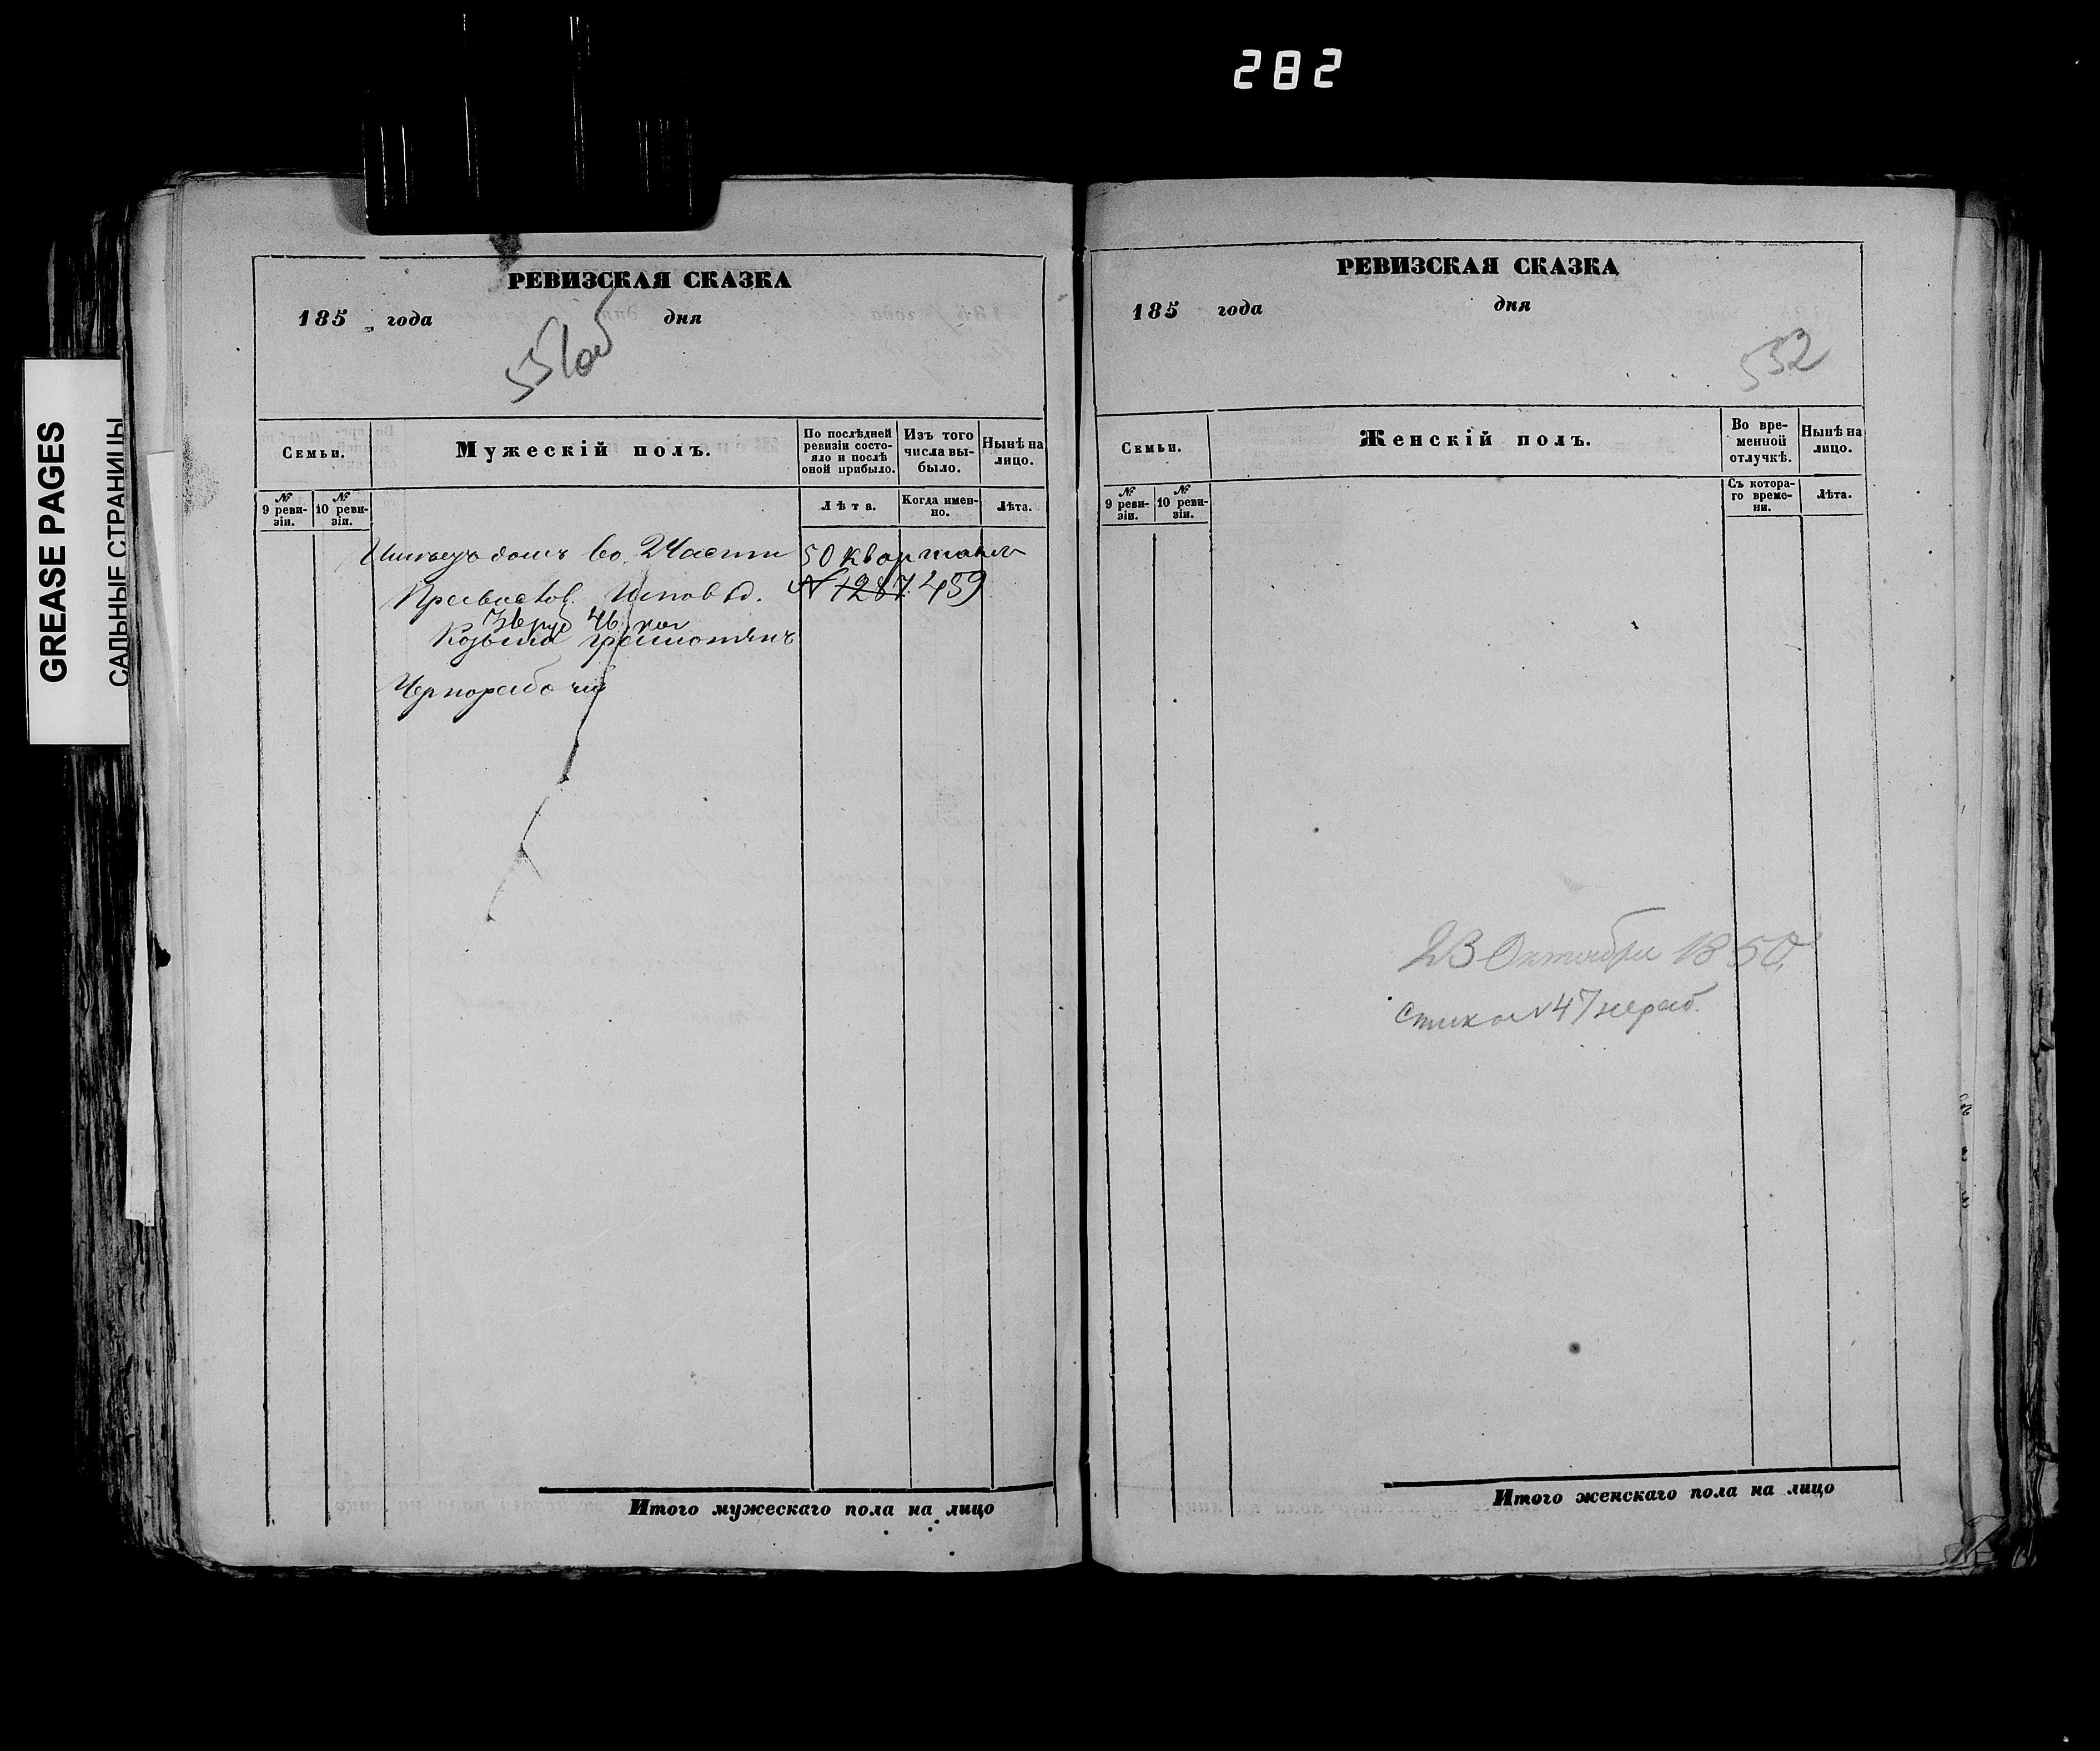 282
GREASE PAGES
САЛЬНЫЕ СТРАНИЦЫ
РЕВИЗСКАЯ СКАЗКА
185 года дня
551об
Семьи.
Мужескій полъ.
По послѣдней ревизіи состояло и послѣ оной прибыло.
Изъ того числа выбыло.
Нынѣ на лицо.
№ 9 ревизіи.
№ 10 ревизіи.
Лѣта.
Когда именно.
Лѣта.
домъ во 2 Части 50 квартала
№ 1287 459
36 руб 46 коп
Козьма грамотенъ
Чернорабочій
Итого мужескаго пола на лицо
РЕВИЗСКАЯ СКАЗКА
185 года дня
552
Семьи.
Женскій полъ.
Во временной отлучкѣ.
Нынѣ на лицо.
№ 9 ревизіи.
№ 10 ревизіи.
Съ котораго времени.
Лѣта.
23 Октября 1850.
Итого женскаго пола на лицо